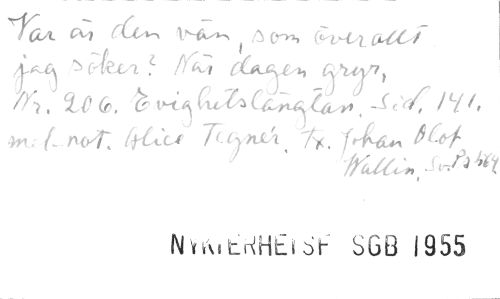 Var är den vän, som överallt
jag söker? När dagen gryr,
Nr. 206. Evighetslängtan. Sid. 141.
m. 1-not. Alice Tegnér. Tx. Johan Olof
Wallin, Sv. Ps 564
NYKTERHETSF SGB 1955